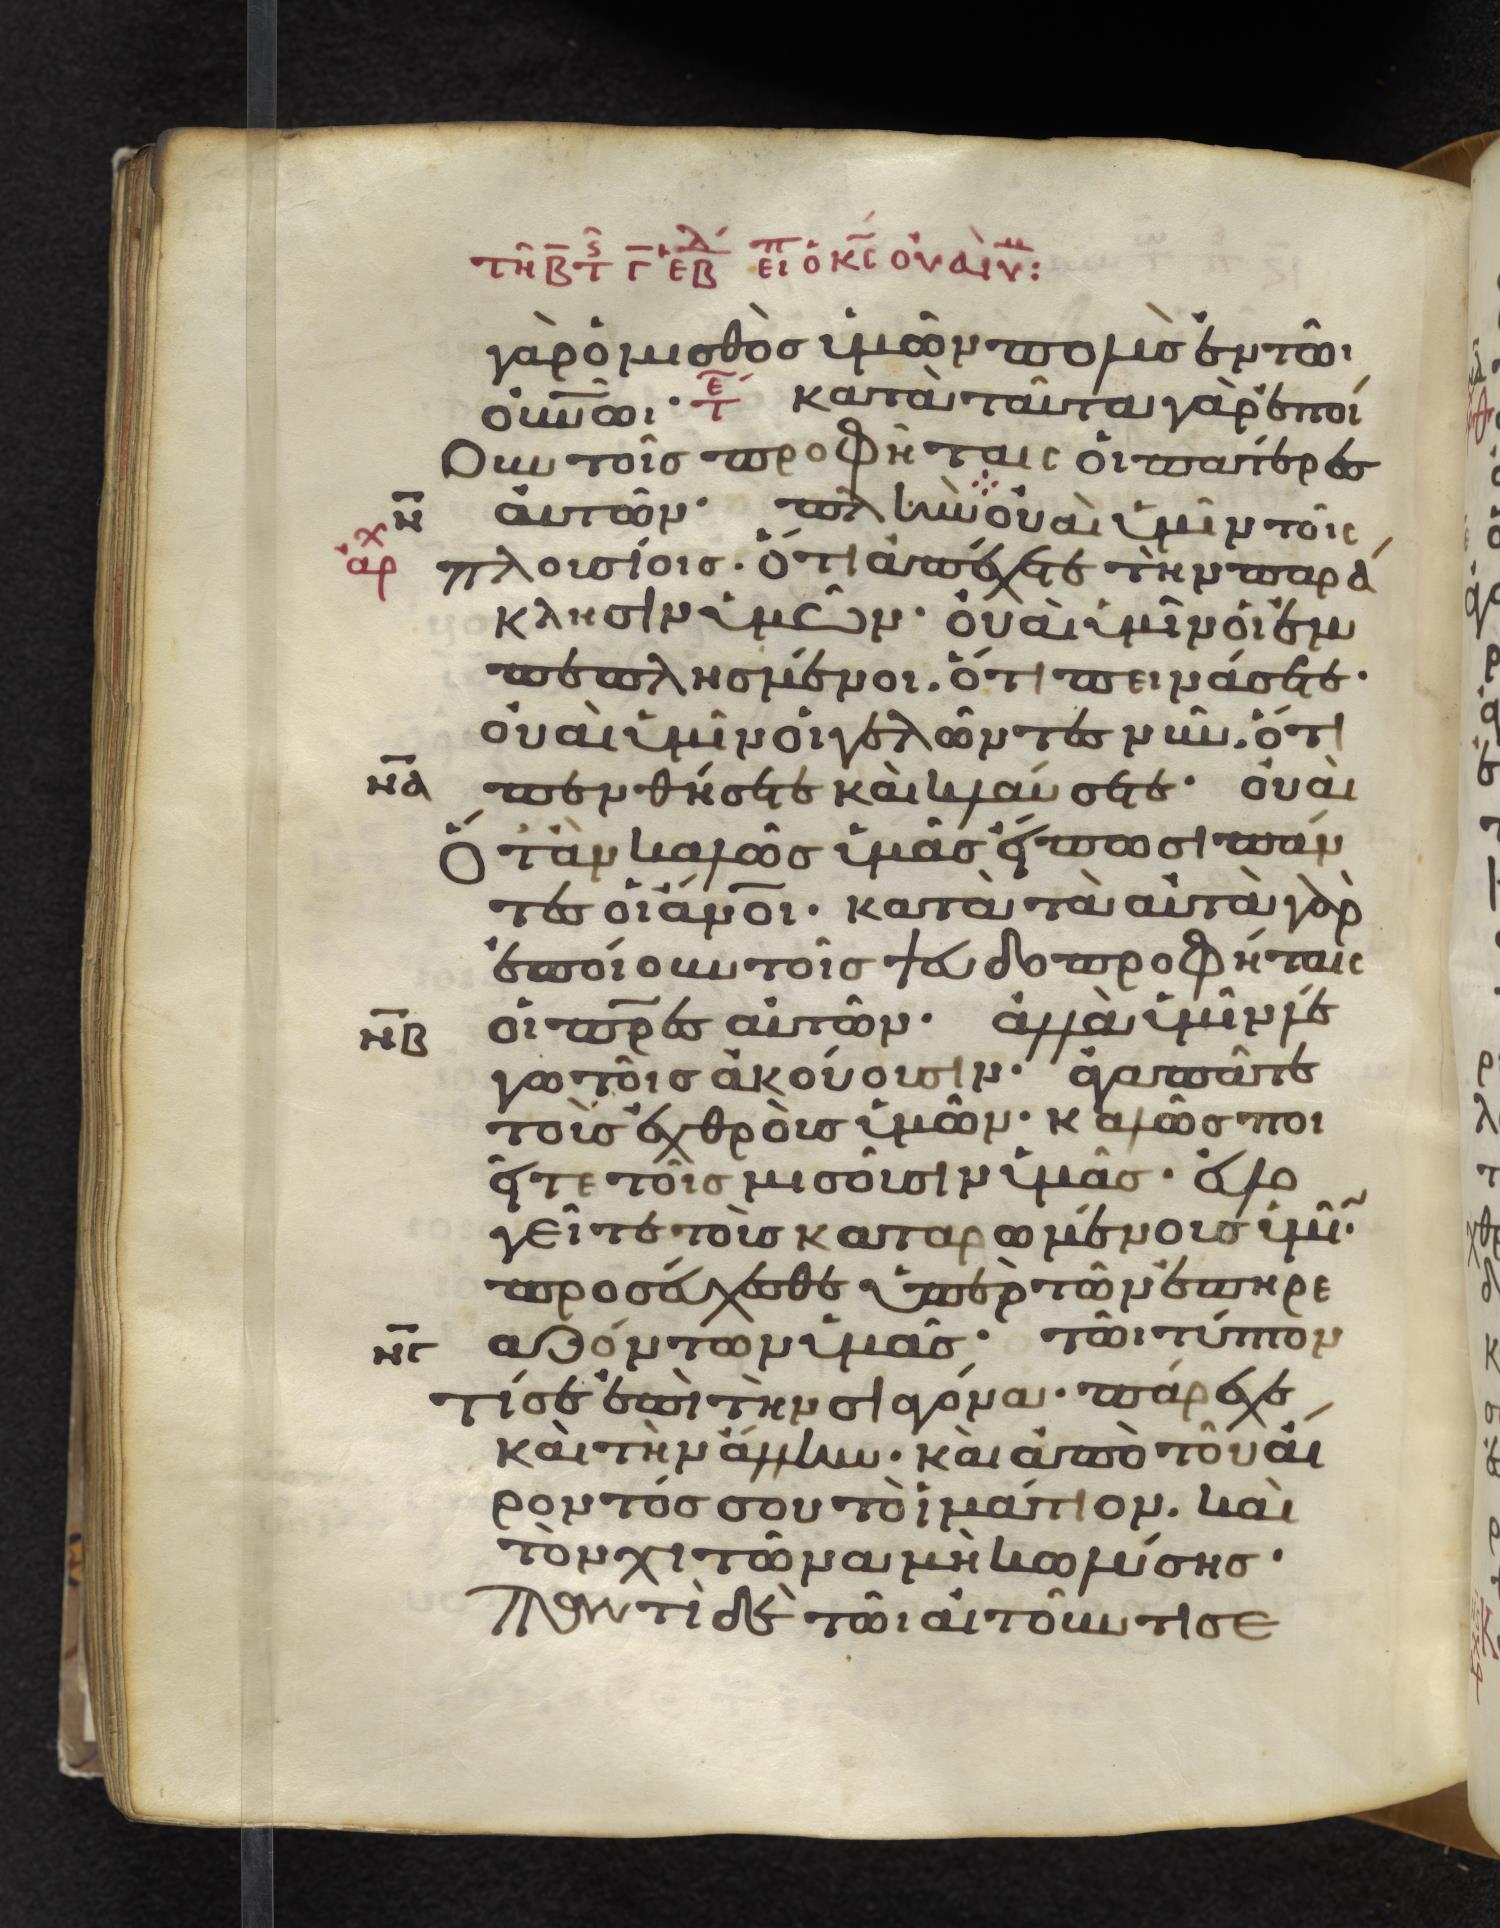 τῆ β̅ τ̅ς̂ γ̅ ἑβ̅λ́ ει̅π ὁ κ̅ς̅ οὐαὶ ὑμ̅:
γὰρ ὁ μισθὸς ὑμῶν πολὺς ἐν τῶι
οὐν̅ῶι· τ̅ε̅ κατὰ ταῦτα γὰρ ἐποί
ουν τοῖς προφήταις οἱ πατέρες
ν̅ αὐτῶν· πλὴν οὐαὶ ὑμῖν τοῖς
ἀρχ πλουσίοις. ὅτι ἀπέχετε τὴν παρά
κλησιν ὑμῶν· οὐαὶ ὑμῖν οἱ ἐμ
πεπλησμένοι. ὅτι πεινάσετε·
οὐαὶ ὑμῖν οἱ γελῶντες νῦν. ὅτι
ν̅α̅ πενθήσετε καὶ κλαύσετε· οὐαὶ
Ὅταν καλῶς ὑμᾶς εἴπωσι πάν
τες οἱ ἄν̅ο̅ι· κατὰ τὰ αὐτὰ γὰρ
ἐποίουν τοῖς ψευδοπροφήταις
ν̅β̅ οἱ π̅ρ̅ες αὐτῶν· ἀλλὰ ὑμῖν λέ
γω τοῖς ἀκούουσιν· ἀγαπᾶτε
τοὺς ἐχθροὺς ὑμῶν· καλῶς ποι
εῖτε τοῖς μισοῦσιν ὑμᾶς· εὐλο
γεῖτε τοὺς καταρωμένους ὑμῖν·
προσεύχεσθε ὑπὲρ τῶν ἐπηρε
ν̅γ̅ αζόντων ὑμᾶς· τῶι τύπτον
τί σε ἐπὶ τὴν σιαγόνα· πάρεχε
καὶ τὴν ἄλλην· καὶ ἀπὸ τοῦ αἴ
ροντός σου τὸ ἱμάτιον. καὶ
τὸν χιτῶνα μὴ κωλύσης·
Παντὶ δὲ τῶι αἰτοῦντι σε